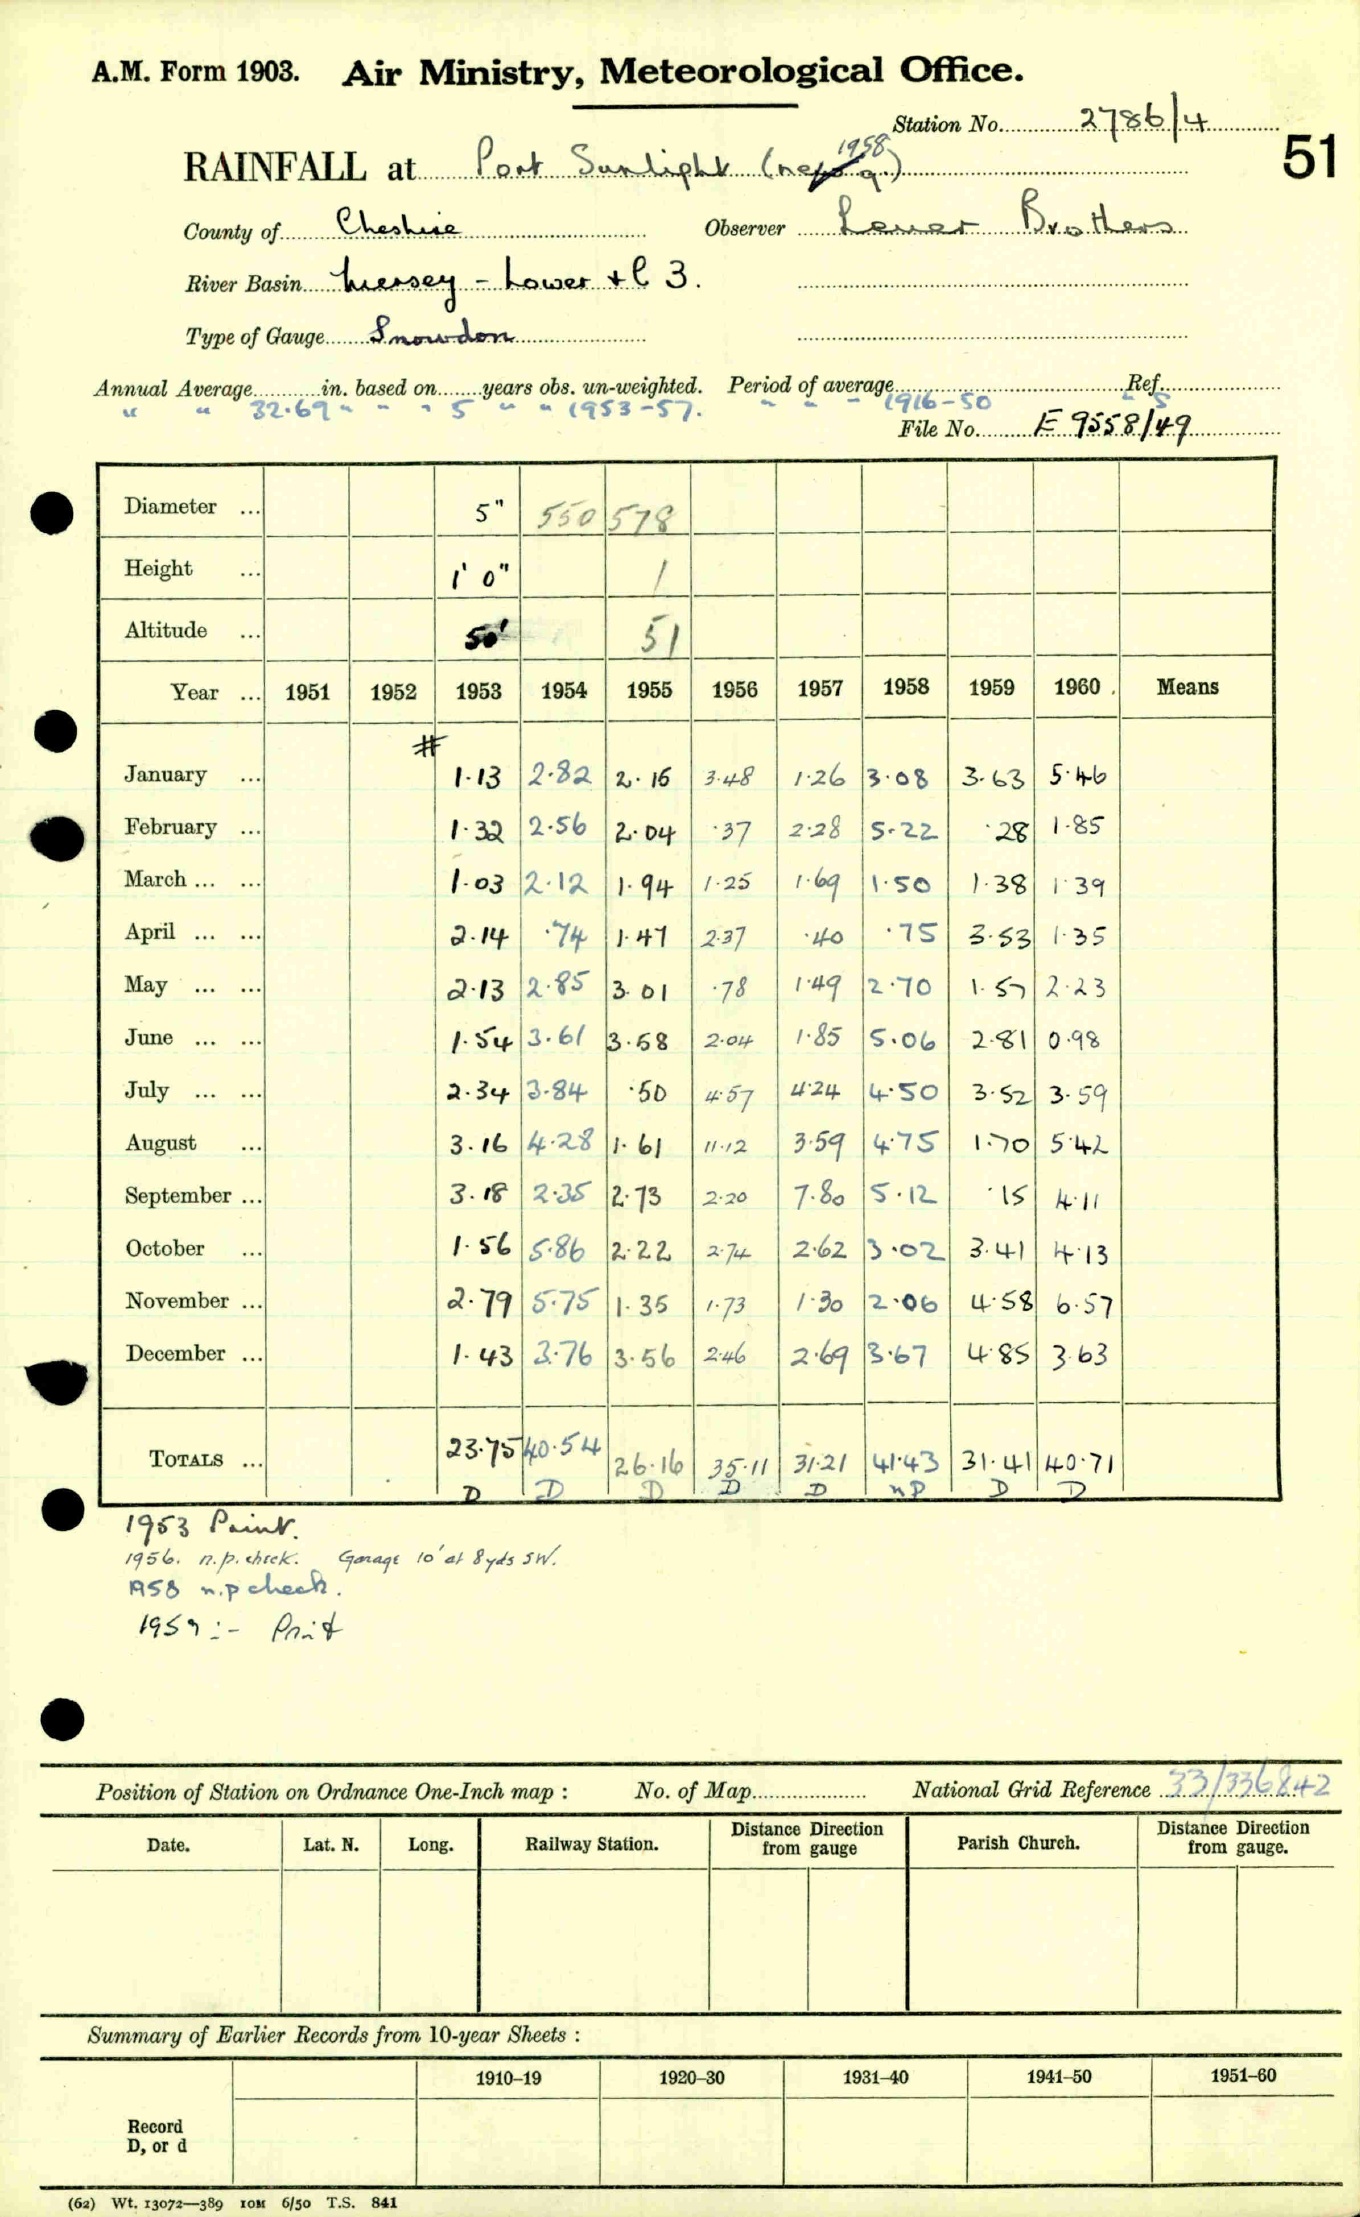 A.M. Form 1903. Air Ministry, Meteorological Office.
Station No. 2786/4
51
1958
RAINFALL at Port Sunlight
County of Cheshire Observer Lever Brothers
River Basin Mersey - Lower + C 3.
Type of Gauge Snowdon
Annual Average in. based on years obs. un-weighted. Period of average Ref.
" " 32.69 " " " 5 " " 1953-57. " " " 1916-50 " 5
File No. E 9558/49
Diameter ... 5" 550 578
Height ... 1' 0" 1
Altitude ... 50' 51
Year ... 1951 1952 1953 1954 1955 1956 1957 1958 1959 1960 Means
#
January ... 1.13 2.82 2.15 3.48 1.26 3.08 3.63 5.46
February ... 1.32 2.56 2.04 .37 2.28 5.22 .28 1.85
March ... ... 1.03 2.12 1.94 1.25 1.69 1.50 1.38 1.39
April ... ... 2.14 .74 1.47 2.37 .40 .75 3.53 1.35
May ... ... 2.13 2.85 3.01 .78 1.49 2.70 1.57 2.23
June ... ... 1.54 3.61 3.58 2.04 1.85 5.06 2.81 0.98
July ... ... 2.34 3.84 .50 4.57 4.24 4.50 3.52 3.59
August ... 3.16 4.28 1.61 11.12 3.59 4.75 1.70 5.42
September ... 3.18 2.35 2.73 2.20 7.80 5.12 .15 4.11
October ... 1.56 5.86 2.22 2.74 2.62 3.02 3.41 4.13
November ... 2.79 5.75 1.35 1.73 1.30 2.06 4.58 6.57
December ... 1.43 3.76 3.56 2.46 2.69 3.67 4.85 3.63
TOTALS ... 23.75 40.54 26.16 35.11 31.21 41.43 31.41 40.71
D D D D D n P D D
1953 Print.
1956. n.p. check. Garage 10' at 8yds SW.
1958 n.p check.
1959 :- Print
Position of Station on Ordnance One-Inch map : No. of Map National Grid Reference 33/336842
Date. Lat. N. Long. Railway Station. Distance from Direction gauge Parish Church. Distance from Direction gauge.
Summary of Earlier Records from 10-year Sheets :
1910–19 1920–30 1931–40 1941–50 1951–60
Record
D, or d
(62) Wt. 13072—389 10M 6/50 T.S. 841